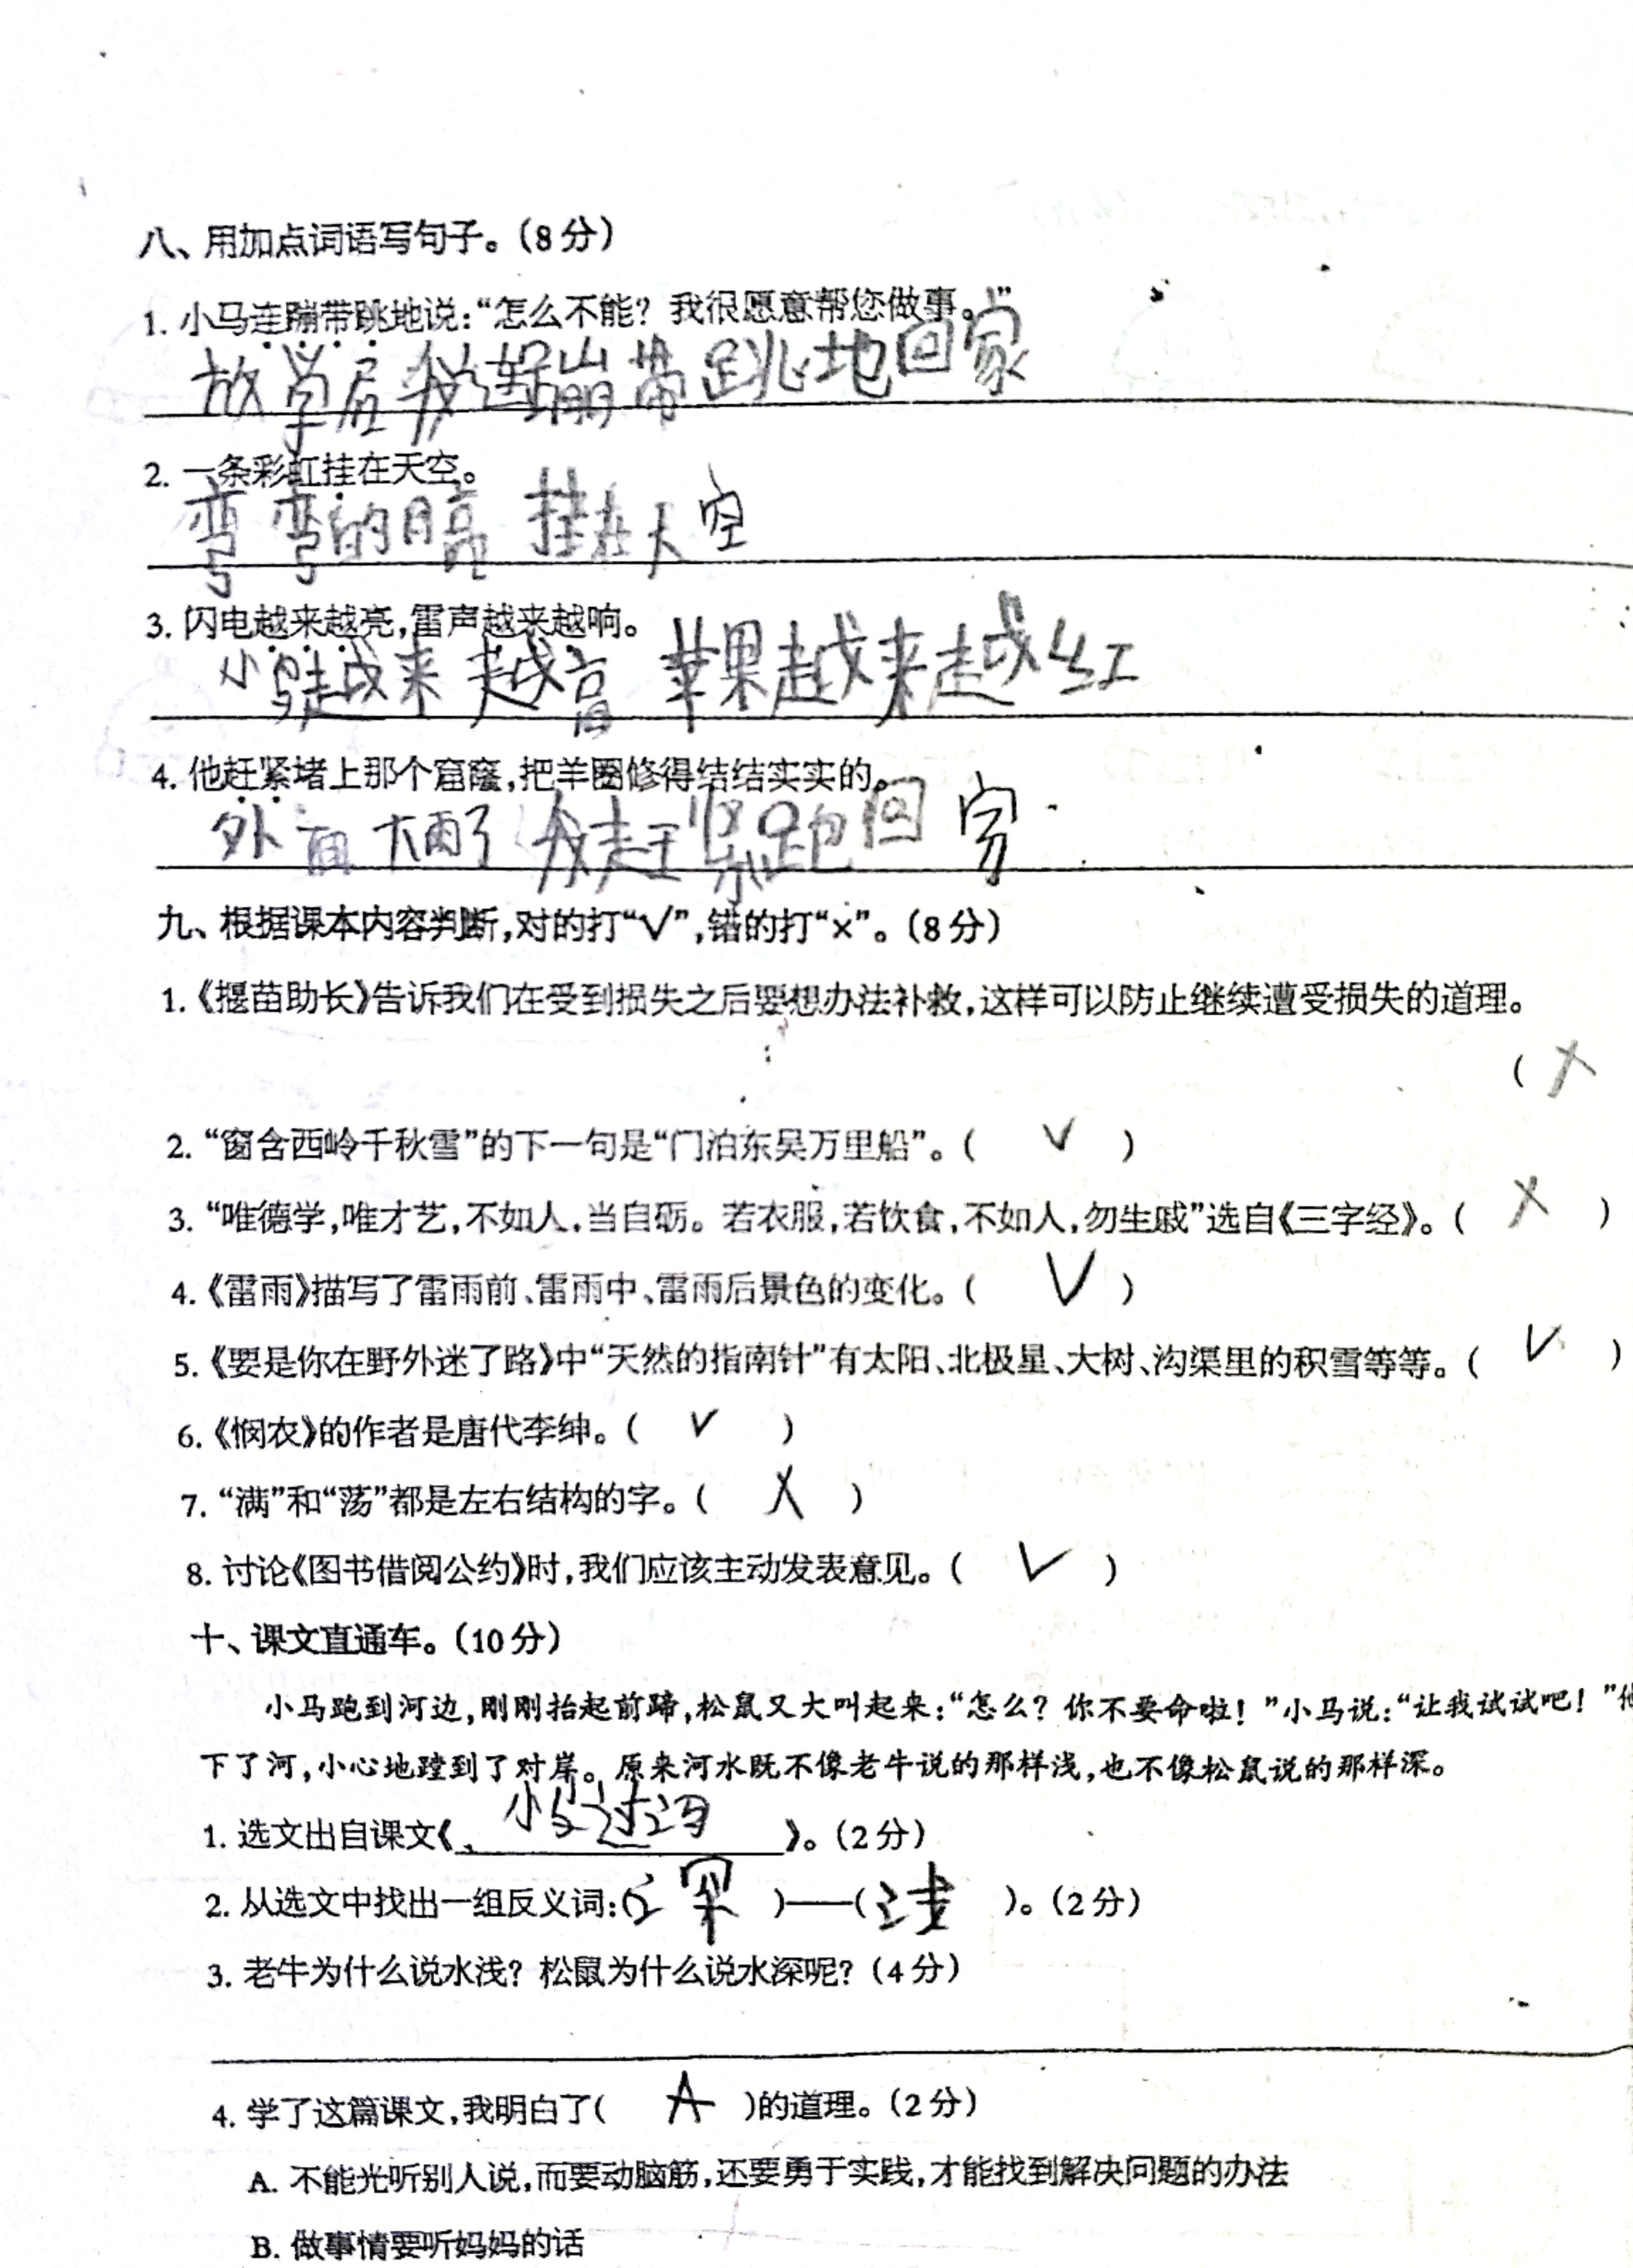 八、用加点词语写句子。(8分)
1. 小马连蹦带跳地说:“怎么不能?我很愿意帮您做事。”
放学后我连蹦带跳地回家
2. 一条彩虹挂在天空。
弯弯的月亮 挂在天空
3. 闪电越来越亮,雷声越来越响。
小鸟越来越高 苹果越来越红
4. 他赶紧堵上那个窟窿,把羊圈修得结结实实的。
外面大雨了 我赶紧跑回家.
九、根据课本内容判断,对的打“√”,错的打“×”。(8分)
1.《揠苗助长》告诉我们在受到损失之后要想办法补救,这样可以防止继续遭受损失的道理。
( ×
2. “窗含西岭千秋雪”的下一句是“门泊东吴万里船”。( √ )
3. “唯德学,唯才艺,不如人,当自砺。若衣服,若饮食,不如人,勿生戚”选自《三字经》。( × )
4.《雷雨》描写了雷雨前、雷雨中、雷雨后景色的变化。( √ )
5.《要是你在野外迷了路》中“天然的指南针”有太阳、北极星、大树、沟渠里的积雪等等。( √ )
6.《悯农》的作者是唐代李绅。( √ )
7. “满”和“荡”都是左右结构的字。( × )
8. 讨论《图书借阅公约》时,我们应该主动发表意见。( √ )
十、课文直通车。(10分)
小马跑到河边,刚刚抬起前蹄,松鼠又大叫起来:“怎么?你不要命啦!”小马说:“让我试试吧!”他
下了河,小心地蹚到了对岸。原来河水既不像老牛说的那样浅,也不像松鼠说的那样深。
1. 选文出自课文《小马过河》。(2分)
2. 从选文中找出一组反义词:(深)——(浅)。(2分)
3. 老牛为什么说水浅?松鼠为什么说水深呢?(4分)
4. 学了这篇课文,我明白了( A )的道理。(2分)
A. 不能光听别人说,而要动脑筋,还要勇于实践,才能找到解决问题的办法
B. 做事情要听妈妈的话